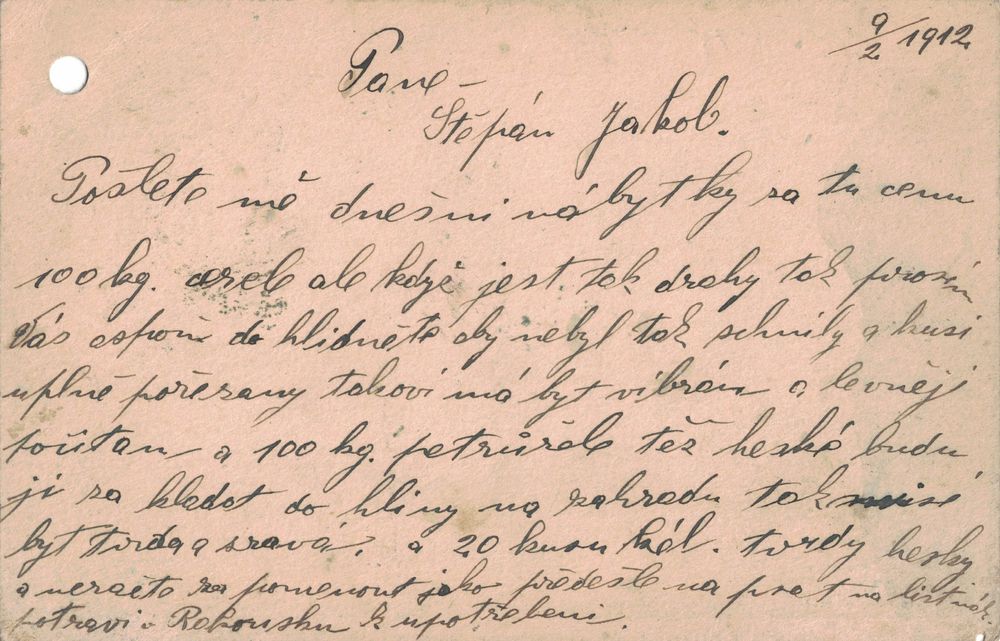 9/2 1912
Pane –
Štěpán Jakob.
Pošlete mě dnešni nábytky za tu cenu
100 kg. ale když jest tak drahy tak prosim
Vás aspoň do hlidněte aby nebyl tak schnily a kusi
uplně pořezany takovi má byt vibrán a levněji
a 100 kg. petružele též heské budu
ji za kladat do hliny na zahradu tak musé
byt tvrda a sravá. a 20 kusu kél. tvrdy hesky
a neračte za pomenout jako předešle na psat na list
potravi v Rakousku k upotřebeni.